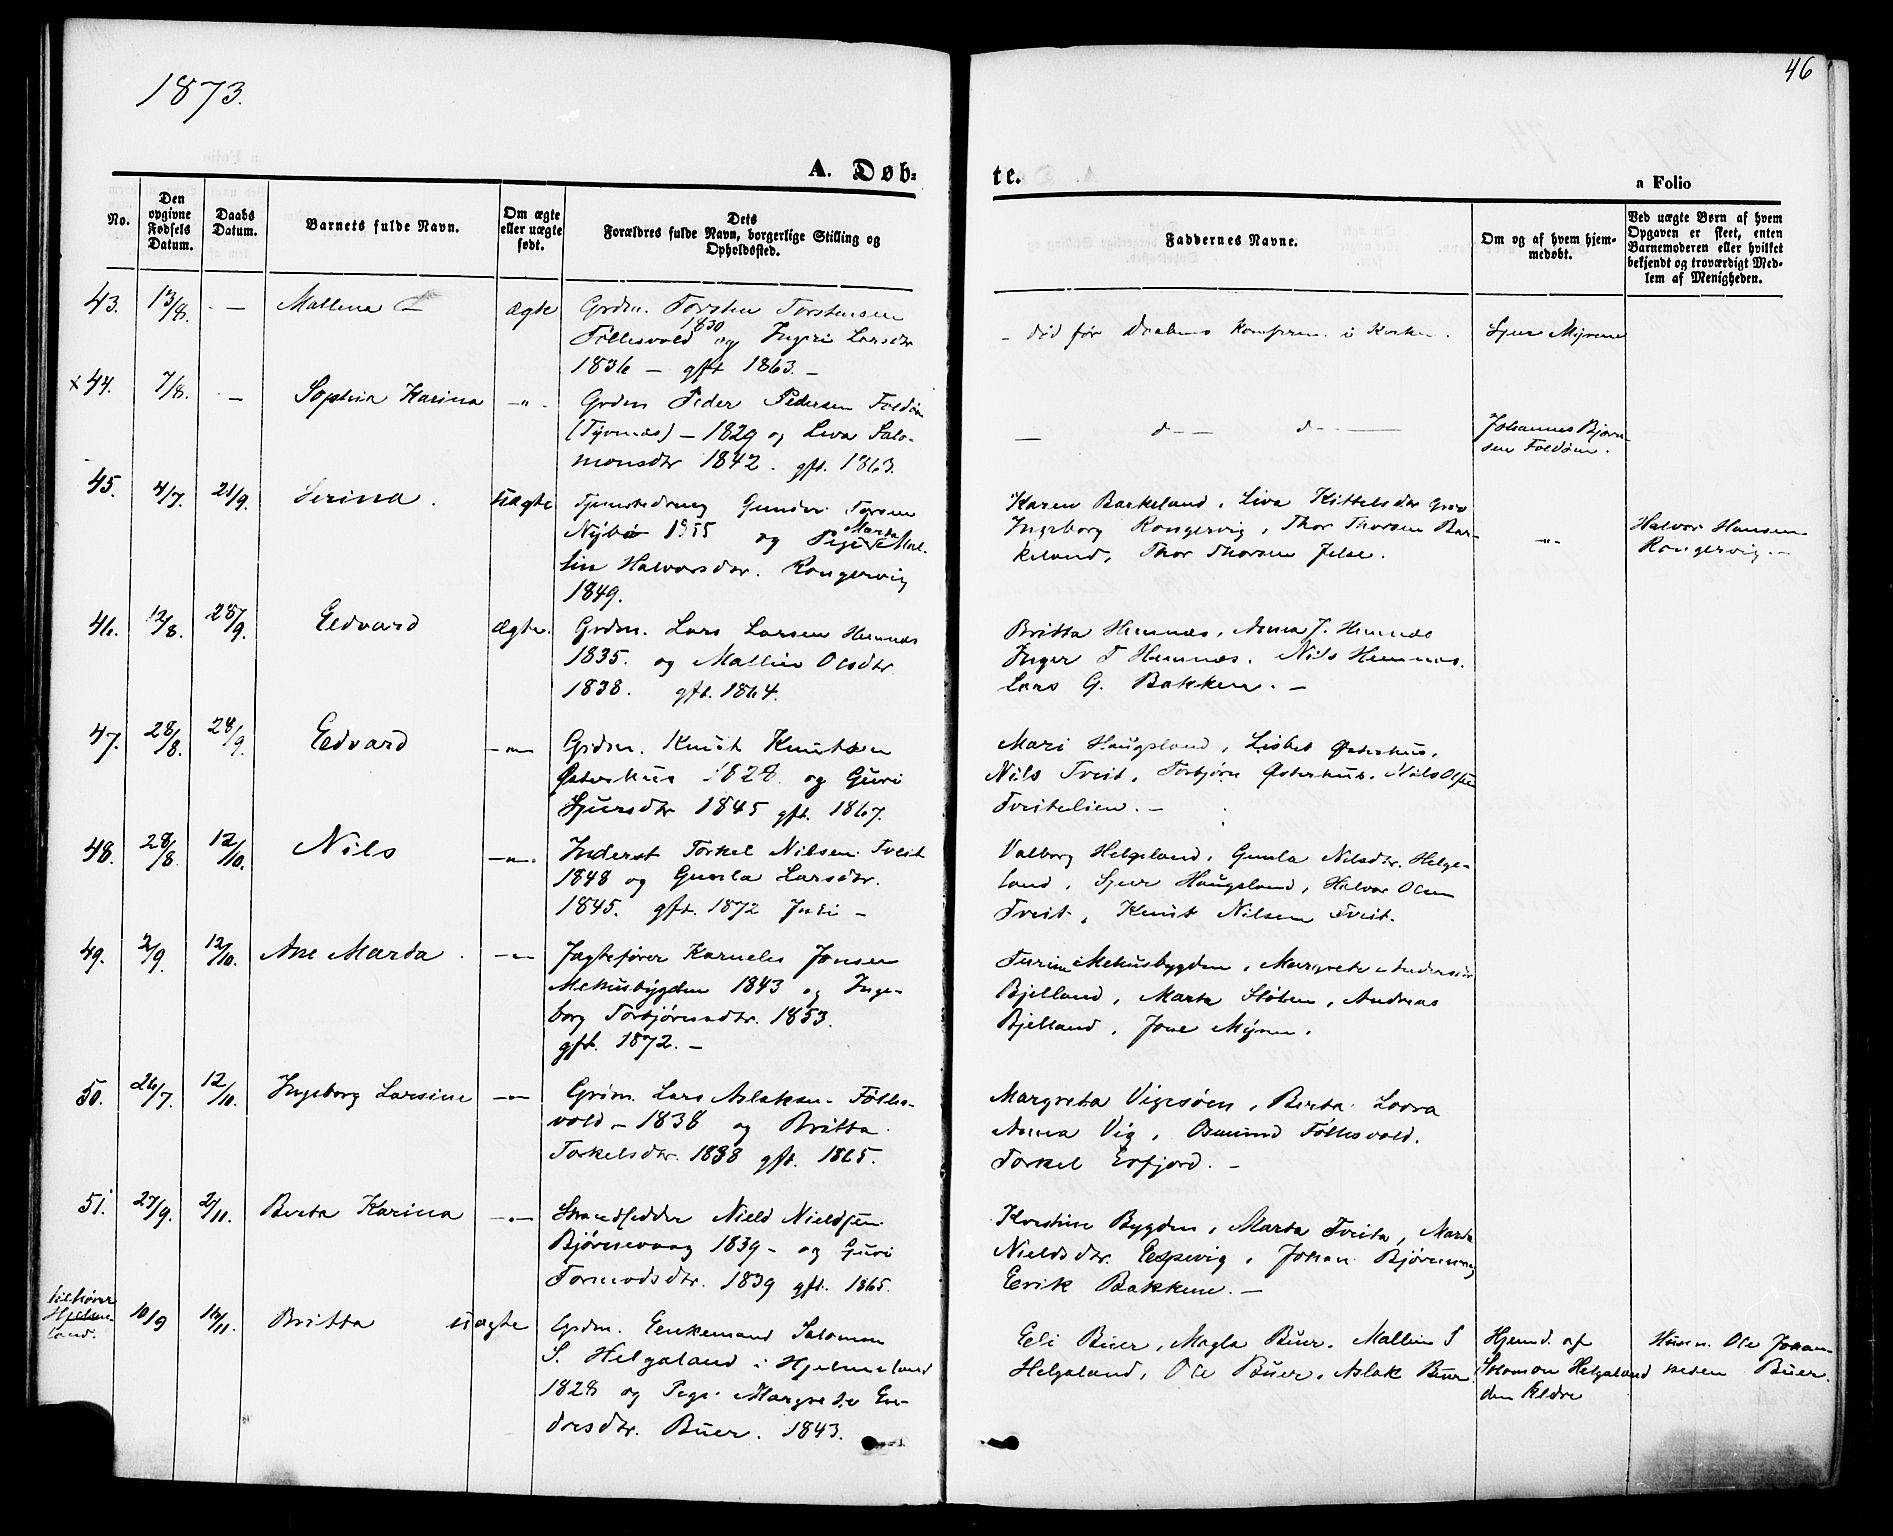 1873.
46
A. Døb-
te.
a Folio
No.
Den opgivne Fødsels Datum.
Daabs Datum.
Barnets fulde Navn.
Om ægte eller uægte født.
Dets
Forældres fulde Navn, borgerlige Stilling og
Opholdssted.
Faddernes Navne.
Om og af hvem hjem-
medøbt.
Ved uægte Børn af hvem
Opgaven er skeet, enten
Barnemoderen eller hvilket
bekjendt og troværdigt Med-
lem af Menigheden.
43. 13/8. - Mallena ægte Grdm. Torsten Torstensen
1830
Føllesvold og Ingeri Larsdtr
1836 - gft 1863. -
- død før Daabens i Kirken. Sjur Myrene
x 44. 7/8. - Sophia Karina -"- Grdm Peder Pedersen Foldøen
- 1829 og Liva Salo-
monsdtr 1842. gft. 1863.
- d- d-
Johannes Bjørn-
sen Foldøen.
45. 4/7. 21/9. Serina. uægte Gunder Torsen
Nybø 1855 og Pige Marta Mal-
lin Halvorsdtr. Rongevig
1849.
Karen Barkeland, Liva Kittelsdtr
Ingeborg Rongevig, Thor Thorsen Bar-
keland, Thor Thorsen Jelse.
-"-
Halvor Hansen
Rongevig. -
46. 12/8. 28/9. Edvard ægte. Grdm. Lars Larsen Hemnæs
1835. og Mallin Olsdtr
1838. gft. 1864.
Britta Hemnæs, Anna J. Hemnæs
Inger T Hemnæs. Nils Hemnæs.
Lars G. Bakken. -
47. 28/8. 28/9. Edvard -"- Grdm. Knut Knutsen
Østerhus 1828 og Guri
Sjursdtr 1845 gft. 1867.
Mari Haugsland, Lisbet Østerhus,
Nils Tveit, Torbjørn Østerhus. Nils Olsen
Tveitelien. -
48. 28/8. 12/10. Nils -"- Inderst Torkel Nilsen Tveit
1848 og Gunla Larsdtr.
1845. gft. 1872 Juli -
Valborg Helgeland, Gunla Nilsdtr. Helge-
land, Sjur Haugsland, Halvor Olsen
Tveit, Knut Nilsen Tveit.
49. 2/9. 12/10. Ane Marta. -"- Jagtefører Karneles Jonsen
Mehusbygden 1843 og Inge-
borg Torbjørnsdtr. 1853.
gft. 1872. -
Turine Mehusbygden, Margrete Andersdtr
Bjelland, Marta Sløten, Andreas
Bjelland, Jone Myren.
50. 26/7. 12/10. Ingeborg Larsine -"- Grdm. Lars Aslaksen Følles-
vold - 1838 og Britta
Torkelsdtr. 1838 gft. 1865.
Margreta Vigesøen, Berta Loora
Anna Vig, Osmund Føllesvold.
Torkel Erfjord. -
51. 27/9. 2/11. Berta Karina -"- Strandsidder Nield Nieldsen
Bjørnevaag 1839 - og Guri
Tormodsdtr. 1839 gft. 1865.
Kirstine Bygden, Marta Tveita, Marta
Nieldsdtr. Espevig, Johan Bjørnevaag
Eerik Bakken. -
tilhører
Hjelme-
land.
10/9 16/11. Britta uægte Grdm. Enkemand Salomon
S. Helgaland i Hjelmeland
1828 og Pige Margrete En-
dresdtr. Buer. 1843.
Eli Buer, Magla Buer. Mallin S
Helgaland, Ole Buer. Aslak Buer.
Hjemd. af
Solomon Helgaland
den Ældre
Husm. Ole Johan-
nesen Buer.